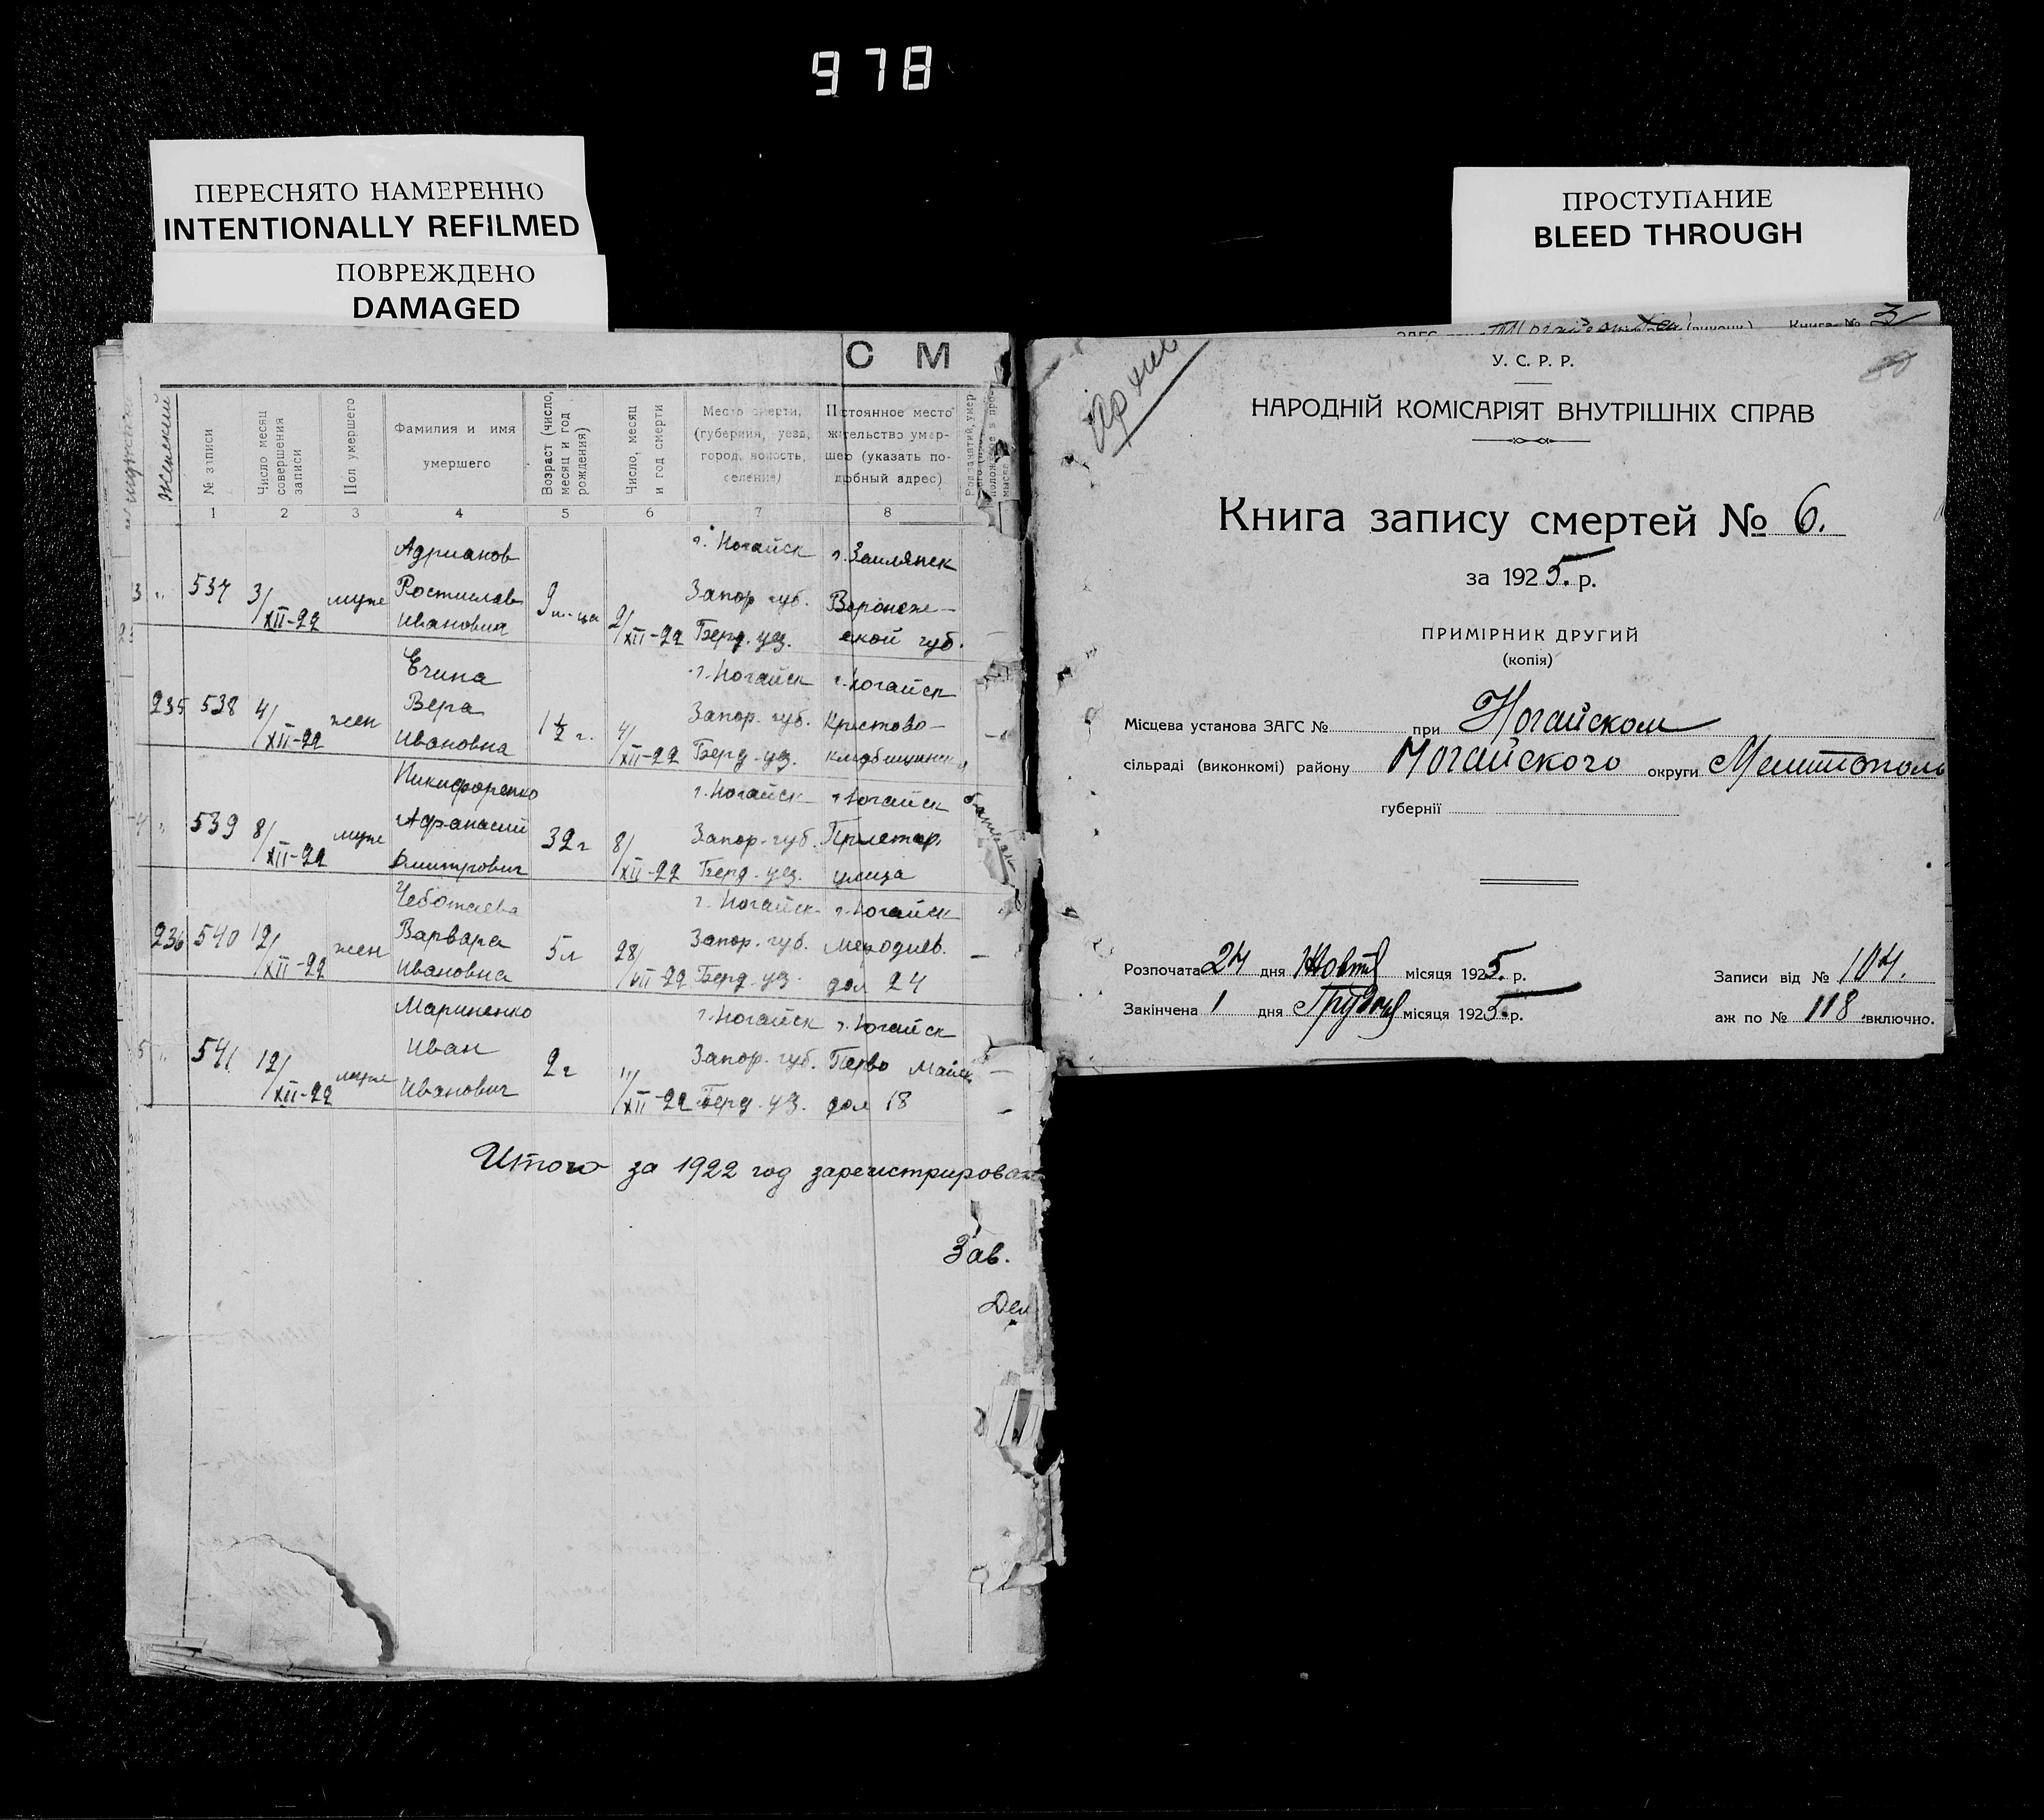 978
ПЕРЕСНЯТО НАМЕРЕННО
INTENTIONALLY REFILMED
ПОВРЕЖДЕНО
DAMAGED
ПРОСТУПАНИЕ
BLEED THROUGH
С М
женский
№ записи
Число месяц совершения записи
Пол умершего
Фамилия и имя умершего
Возраст (число, месяц и год рождения)
Число, месяц и год смерти
Место смерти, (губерния, уезд, город, волость, селение)
Постоянное место жительство умершего (указать подробный адрес)
1 2 3 4 5 6 7 8
Адрианов г. Ногайск г. Землянск
537 3/XII-22 муж Ростислав 9 м-ца 2/XII-22 Запор губ. Воронеж-
Иванович Берд. уз. ской губ.
Ечина г. Ногайск г. Ногайск
235 538 4/XII-22 жен Вера 1½ г. 4/XII-22 Запор. губ. Крестово-
Ивановна Берд. уз.
Никифоренко г. Ногайск г. Ногайск
539 8/XII-22 муж Афанасий 32 г 8/XII-22 Запор. губ.
Дмитрович Берд. уз. улица
Чеботаева г. Ногайск г. Ногайск
236 540 12/XII-22 жен Варвара 5 л 28/VII-22 Запор. губ. Мефодиев.
Ивановна Берд. уз. дом 24
Мариненко г. Ногайск г. Ногайск
541 12/XII-22 муж Иван 2 г 11/XII-22 Запор. губ. Перво Майск
Иванович Берд. уз. дом 18
Итого за 1922 год зарегистрирован
Зав.
Дел
Книга № 3
Архив
80
У. С. Р. Р.
НАРОДНІЙ КОМІСАРІЯТ ВНУТРІШНІХ СПРАВ
Книга запису смертей № 6.
за 1925. р.
ПРИМІРНИК ДРУГИЙ
(копія)
Місцева установа ЗАГС № при Ногайском
сільраді (виконкомі) району Ногайского округи Мелитополь
губернії
Розпочата 24 дня Жовтня місяця 1925. р. Записи від № 104.
Закінчена 1 дня Грудня місяця 1925. р. аж по № 118 включно.